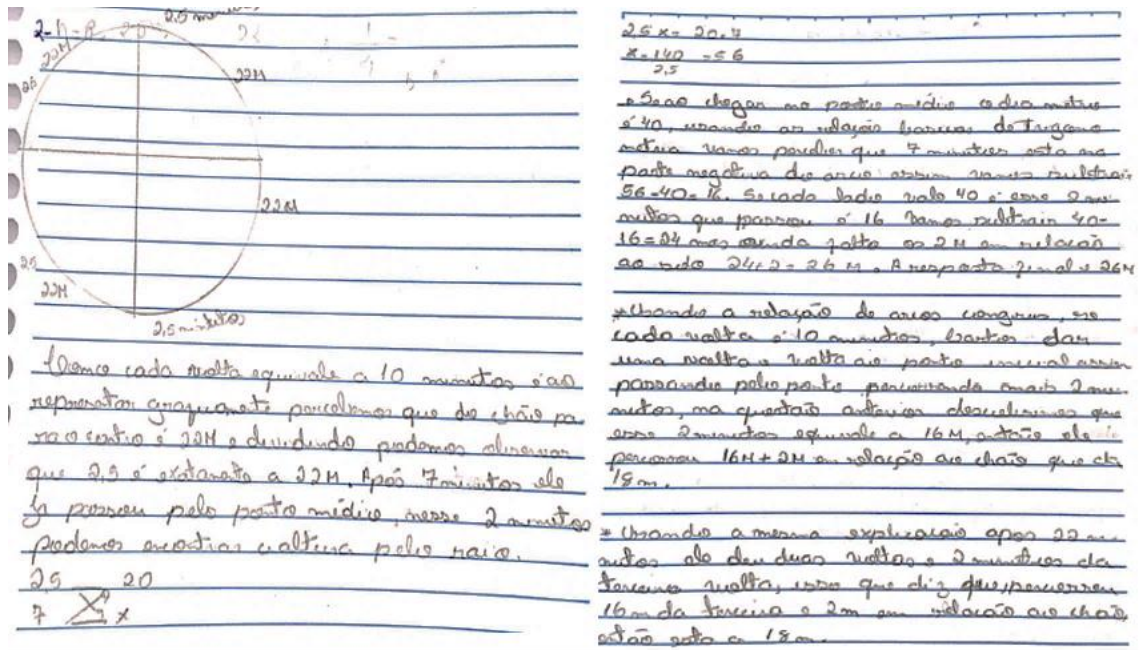 2-A-R
2,5 minutos
22M
22M
22M
25
22M
2,5 minutos
Como cada volta equivale a 10 minutos e ao
representar percebemos que do chão pa
ra o centro é 22M e dividindo podemos observar
que 2,5 é a 22M. Após 7 minutos ele
já passou pelo ponto médio, nesse 2 minutos
podemos encontrar a altura pelo raio.
25 20
7 x
2,5 x = 20.7
x = 140 = 56
2,5
Se ao chegar no ponto médio o diametro
é 40, usando as relações basicas de trigono
metria vamos perceber que 7 minutos esta na
parte negativa do arco assim vamos subtrair
56-40=16. Se cada lado vale 40 e esse 2 mi
nutos que passou é 16 vamos subtrair 40-
16=24 mas ainda falta os 2M em relação
ao solo 24+2=26 M. A resposta final é 26M
*Usando a relação de arcos congruos, se
cada volta é 10 minutos, basta dar
uma volta e volta ao ponto inicial assim
passando pelo ponto percorrendo mais 2 mi
nutos, na questão anterior descobrimos que
esse 2 minutos equivale a 16M, então ele
percorreu 16M + 2M em relação ao chão que da
18m.
* Usando a mesma explicação apos 22 mi
nutos ele deu duas voltas e 2 minutos da
terceira volta, isso que diz que percorreu
16m da terceira e 2m em relação ao chão,
então esta a 18m.